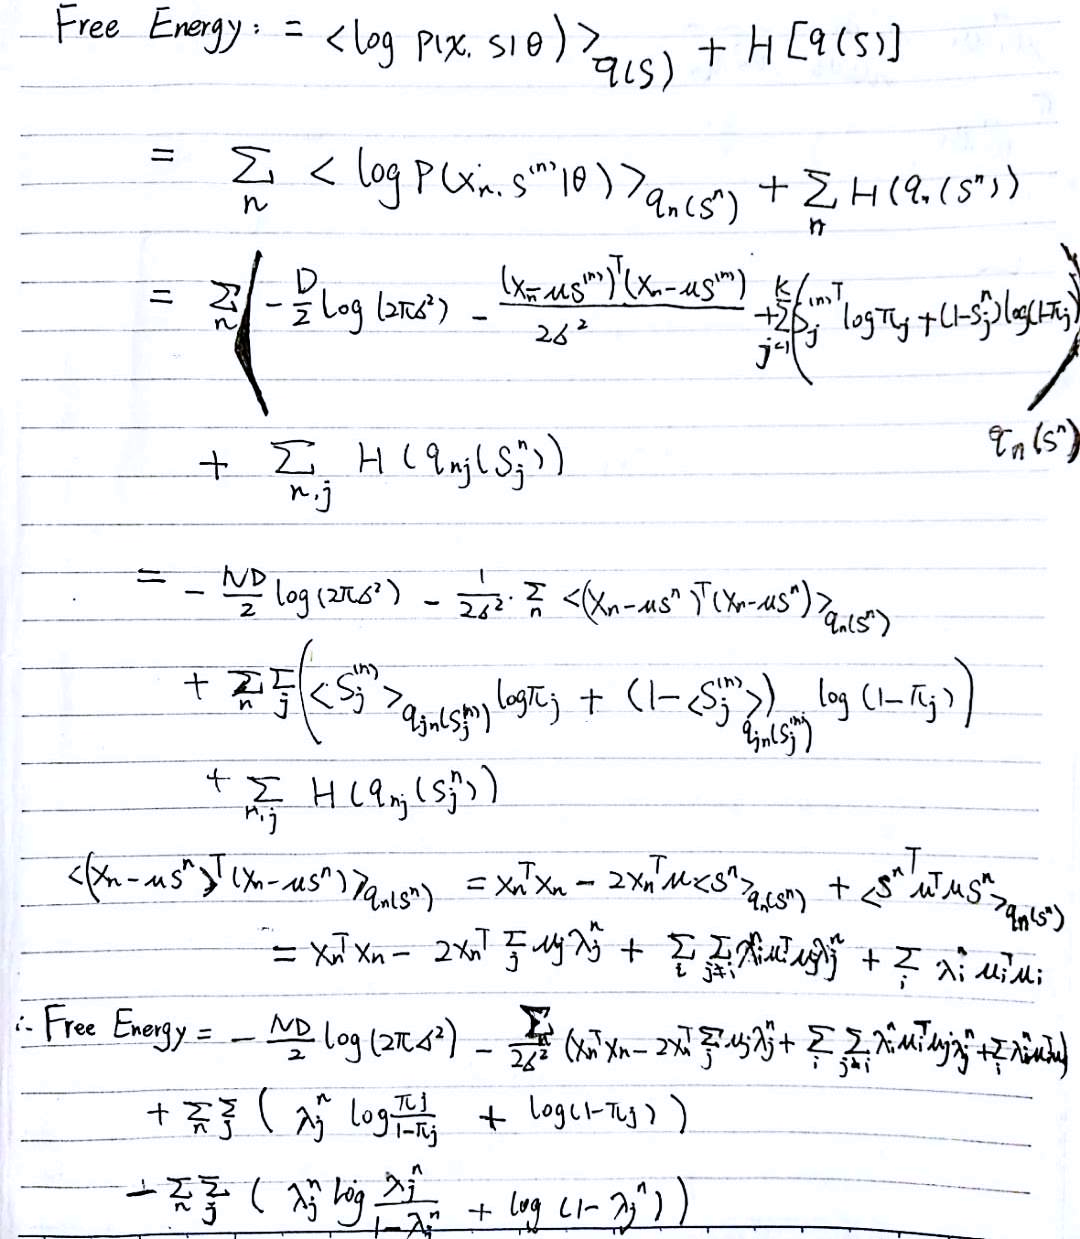 Free Energy: = <log P(x, s|θ)>_{q(s)} + H[q(s)]
= Σ_n <log P(x_n, s^{(n)}|θ)>_{q_n(s^n)} + Σ_n H(q_n(s^n))
= Σ_n < -D/2 log(2πσ²) - (x_n-μs^{(n)})^T(x_n-μs^{(n)}) / 2σ² + Σ_{j=1}^K (s_j^{(n)T} log π_j + (1-s_j^n) log(1-π_j) >_{q_n(s^n)}
+ Σ_{n,j} H(q_{nj}(s_j^n))
= -ND/2 log(2πσ²) - 1/2σ² · Σ_n <(x_n-μs^n)^T(x_n-μs^n)>_{q_n(s^n)}
+ Σ_n Σ_j (<s_j^{(n)}>_{q_{jn}(s_j^{(n)})} log π_j + (1-<s_j^{(n)}>)_{q_{jn}(s_j^{(n)})} log(1-π_j))
+ Σ_{n,j} H(q_{nj}(s_j^n))
<(x_n-μs^n)^T(x_n-μs^n)>_{q_n(s^n)} = x_n^T x_n - 2x_n^T μ<s^n>_{q_n(s^n)} + <s^{nT} μ^T μ s^n>_{q_n(s^n)}
= x_n^T x_n - 2x_n^T Σ_j μ_j λ_j^n + Σ_i Σ_{j≠i} λ_i^n μ_i^T μ_j λ_j^n + Σ_i λ_i^n μ_i^T μ_i
∴ Free Energy = -ND/2 log(2πσ²) - Σ_n/2σ² (x_n^T x_n - 2x_n^T Σ_j μ_j λ_j^n + Σ_i Σ_{j≠i} λ_i^n μ_i^T μ_j λ_j^n + Σ_i λ_i^n μ_i^T μ_i)
+ Σ_n Σ_j (λ_j^n log π_j/(1-π_j) + log(1-π_j))
- Σ_n Σ_j (λ_j^n log λ_j^n/(1-λ_j^n) + log(1-λ_j^n))